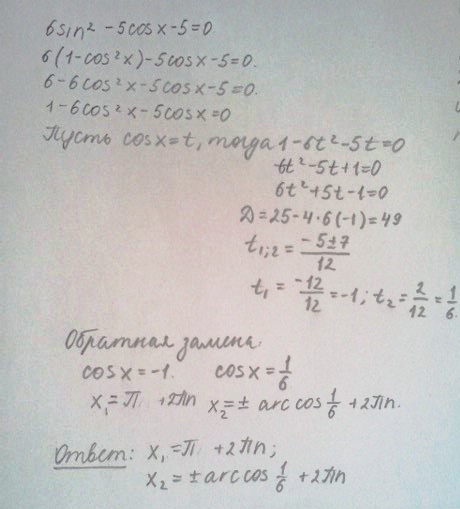 6sin² -5cosx-5=0
6(1-cos²x)-5cosx-5=0.
6-6cos²x-5cosx-5=0.
1-6cos²x-5cosx=0
Пусть cosx=t, тогда 1-6t²-5t=0
-6t²-5t+1=0
6t²+5t-1=0
Д=25-4·6(-1)=49
t₁;₂ = (-5±7)/12
t₁ = -12/12 = -1; t₂ = 2/12 = 1/6.
Обратная замена:
cosx=-1. cosx=1/6
x₁=π +2πn x₂=± arccos 1/6 +2πn.
Ответ: x₁=π +2πn;
x₂ = ±arccos 1/6 +2πn